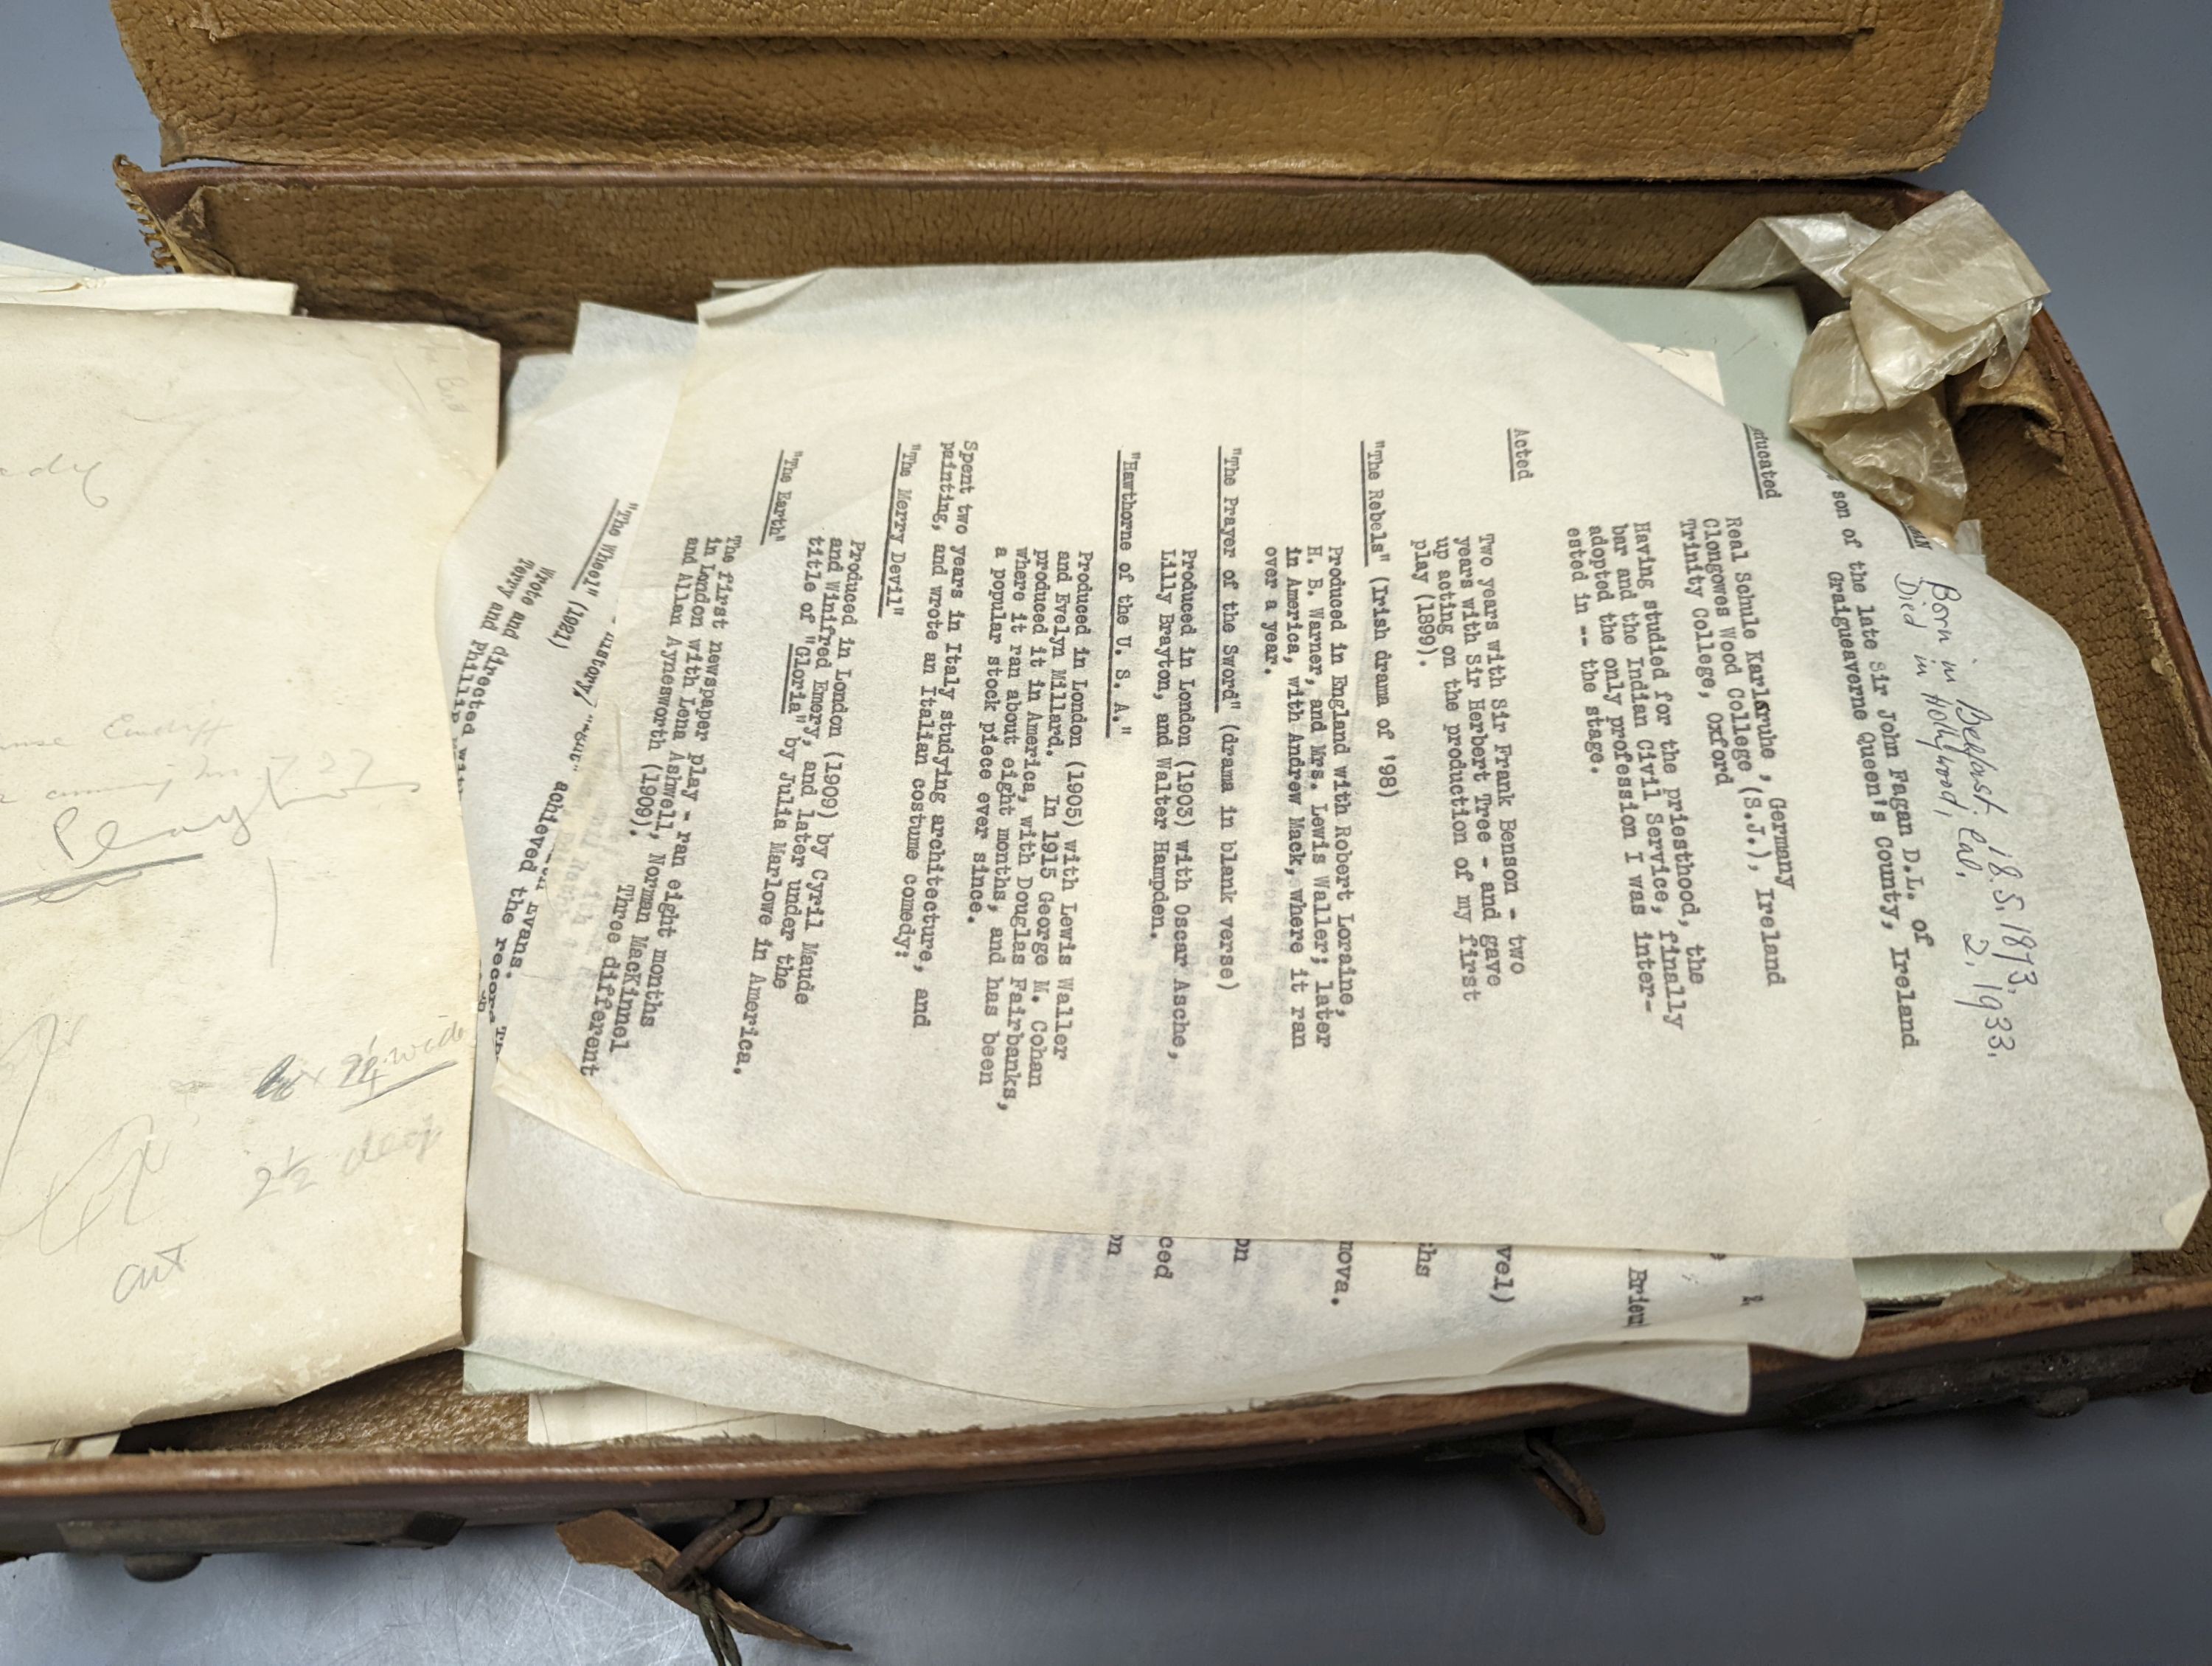 Born in Belfast 18.5.1873.
Died in Hollywood, Cal. 2.1933.
son of the late Sir John Fagan D.L. of
Graigueaverne Queen's County, Ireland
ducated
Real Schule Karlsruhe, Germany
Clongowes Wood College (S.J.), Ireland
Trinity College, Oxford
Having studied for the priesthood, the
bar and the Indian Civil Service, finally
adopted the only profession I was inter-
ested in -- the stage.
Acted
Two years with Sir Frank Benson - two
years with Sir Herbert Tree - and gave
up acting on the production of my first
play (1899).
"The Rebels" (Irish drama of '98)
Produced in England with Robert Loraine,
H. B. Warner, and Mrs. Lewis Waller; later
in America, with Andrew Mack, where it ran
over a year.
"The Prayer of the Sword" (drama in blank verse)
Produced in London (1903) with Oscar Asche,
Lilly Brayton, and Walter Hampden.
"Hawthorne of the U. S. A."
Produced in London (1905) with Lewis Waller
and Evelyn Millard. In 1915 George M. Cohan
produced it in America, with Douglas Fairbanks,
where it ran about eight months, and has been
a popular stock piece ever since.
Spent two years in Italy studying architecture, and
painting, and wrote an Italian costume comedy:
"The Merry Devil"
Produced in London (1909) by Cyril Maude
and Winifred Emery, and later under the
title of "Gloria" by Julia Marlowe in America.
"The Earth"
The first newspaper play - ran eight months
in London with Lena Ashwell, Norman MacKinnel
and Allan Aynesworth (1909). Three different
"The Wheel" (1921)
Wrote and directed
Terry and Phillip with
achieved the record
Evans.
Brieu
vel)
ths
nova.
on
ced
on
2¼ wide
2½ deep
cut